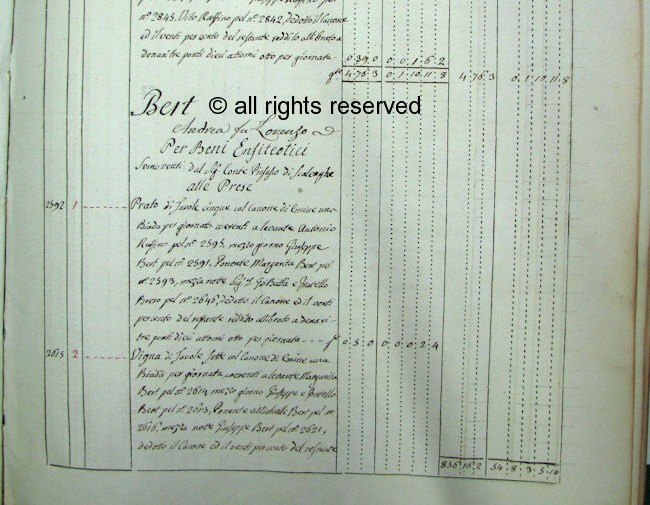 nº. 2845. Vito Ruffino pel nº. 2842, dedotto il Canone
ed il venti per cento del restante reddito allibrato a
denari tre ponti dieci attomi otto per giornata 0. 39. 0 0. 0. 1. 6. 2
4. 76. 3 0. 1. 10. 11. 8 4. 76. 3 0. 1. 10. 11. 8
Bert © all rights reserved
Andrea fu Lorenzo
Per Beni Enfiteotici
alle Prese
2592 1 Prato di Tavole cinque col Canone di Emine una
Biada per giornata coerenti a levante Antonio
Ruffino pel nº. 2595, mezzo giorno Giuseppe
Bert pel nº. 2591, Ponente Margarita Bert pel
nº. 2593, mezza notte Sig. Gio Batta e Fratello
pel nº. 2646, dedotto il Canone ed il venti
percento del restante reddito allibrato a denari
tre ponti dieci attomi otto per giornata 0. 5. 0 0. 0. 0. 2. 4
2615 2 Vigna di Tavole Sette col Canone di Emine una
Biada per giornata coerenti a levante Margarita
Bert pel nº. 2614, mezzo giorno Giuseppe e Fratello
Bert pel nº. 2613, Ponente Michele Bert pel nº.
2616, mezza notte Giuseppe Bert pel nº. 2621,
dedotto il Canone ed il venti per cento del restante
836. 16. 2 54. 8. 3. 5. 10